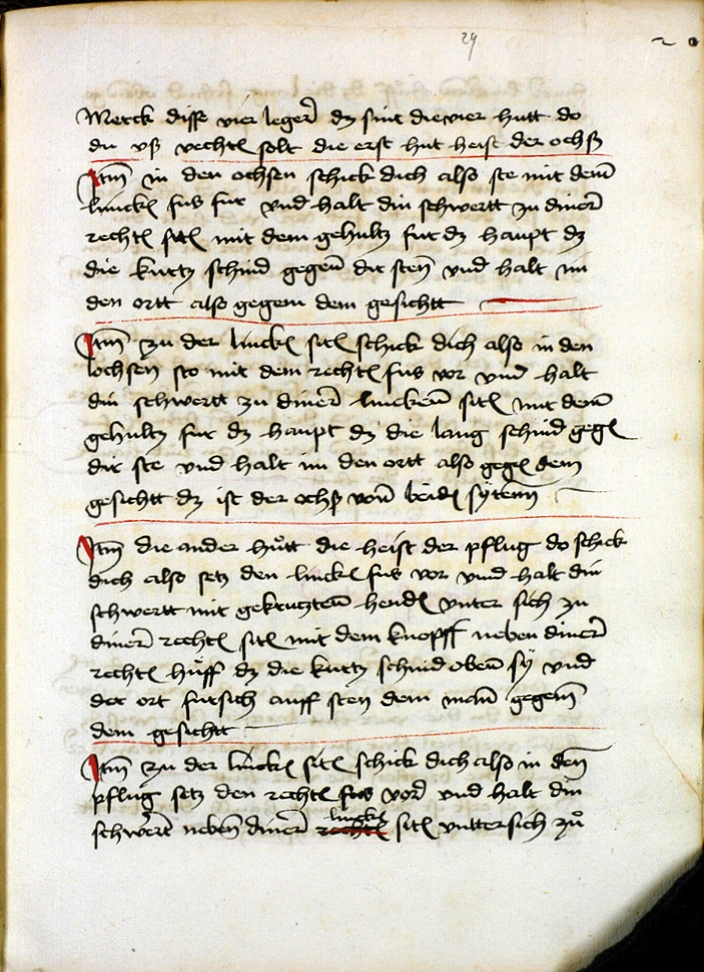 29
Merck disse vier leger̄ dz sint die vier hutt do
du vß vechtē solt die erst hut heist der ochß
Itm̄ in den ochsen schick dich also ste mit dem̄
linckē fus fur vnd halt din schwertt zu diner̄
rechtē sitē mit dem gehultz fur dz haupt dz
die kurtz schnid gegen̄ dir sten̄ vnd halt im
den ortt also gegem dem gesichtt
Itm̄ zu der linckē sitē schick dich also in den
ochsen sto mit dem rechtē fus vor vnd halt
din schwertt zu diner̄ linckem̄ sitē mit dem̄
gehultz fur dz haupt dz die lang schnid gegē
dir ste vnd halt im den ortt also gegē dem
gesichtt dz ist der ochß von̄ beidē sytenn̄
Itm̄ die ander hůtt die heist der pflug do schick
dich also setz den linckē fus vor vnd halt din
schwertt mit gekrutzten̄ hendē vnter sich zu
diner̄ rechtē sitē mit dem knopff neben diner̄
rechtē hůff dz die kurtz schnid oben̄ sÿ vnd
der ort fursich auff sten dem man̄ gegem̄
dem gesichtt
Itm̄ zu der linckē sitē schick dich also in den̄
pflug setz den rechtē fus vor̄ vnd halt din
schwert̄ neben̄ diner̄ linckē sitē vnttersich zů